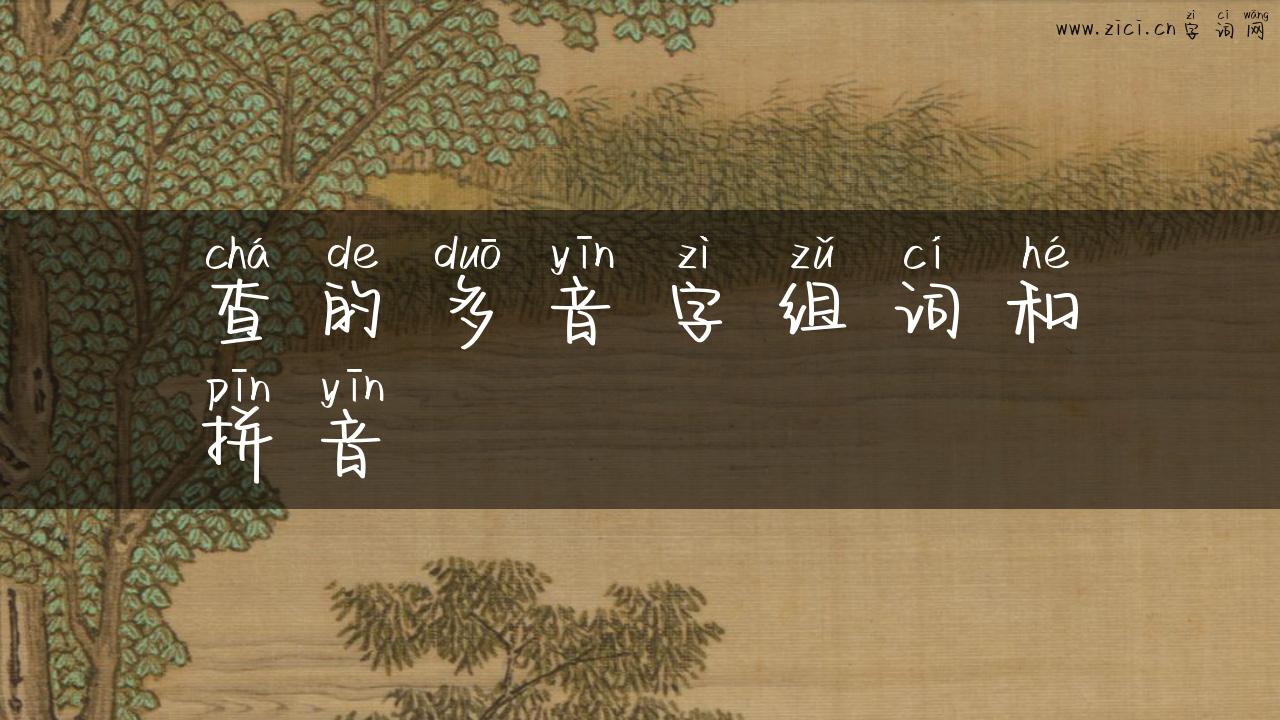 zì cí wǎng
www.zici.cn字词网
chá de duō yīn zì zǔ cí hé
查的多音字组词和
pīn yīn
拼音